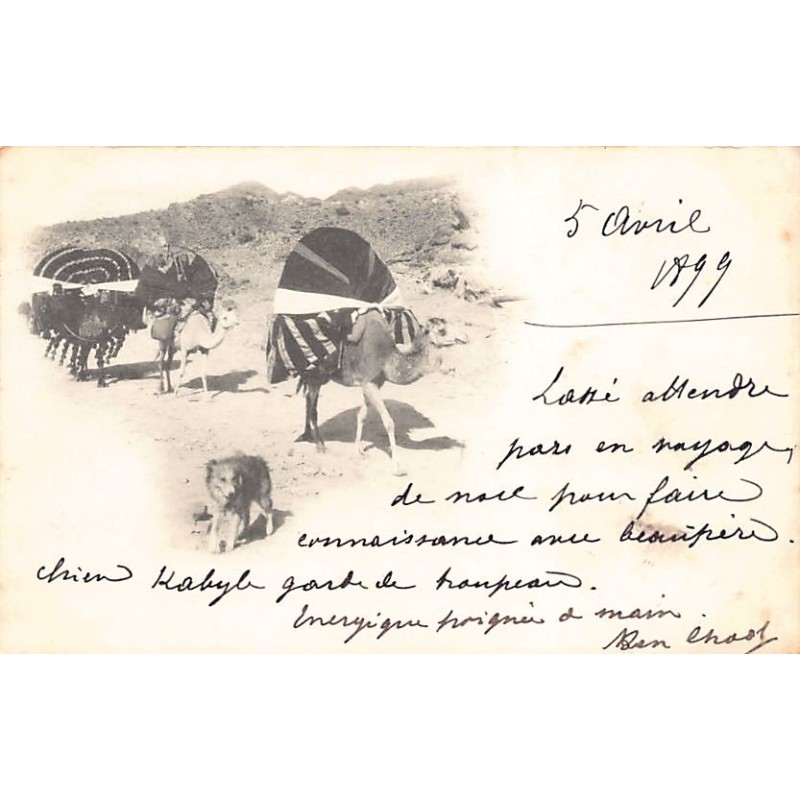 5 Avril
1899
Lassé attendre
pars en voyage,
de noce pour faire
connaissance avec beaupère.
chien Kabyle garde de troupeau.
Energique poignée d main.
Ben